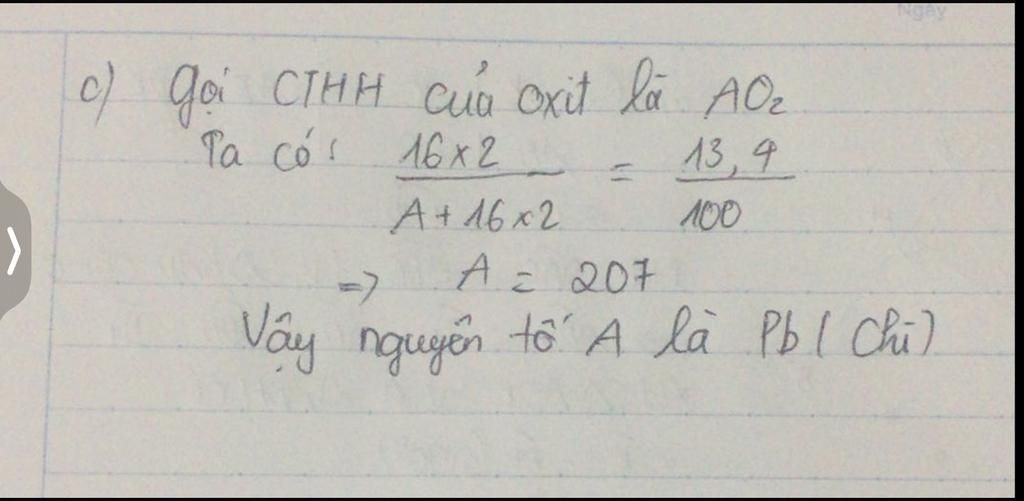 Ngày
c) Gọi CTHH của oxit là AO₂
Ta có: 16×2 / A+16×2 = 13,4 / 100
=> A = 207
Vậy nguyên tố A là Pb ( Chì )